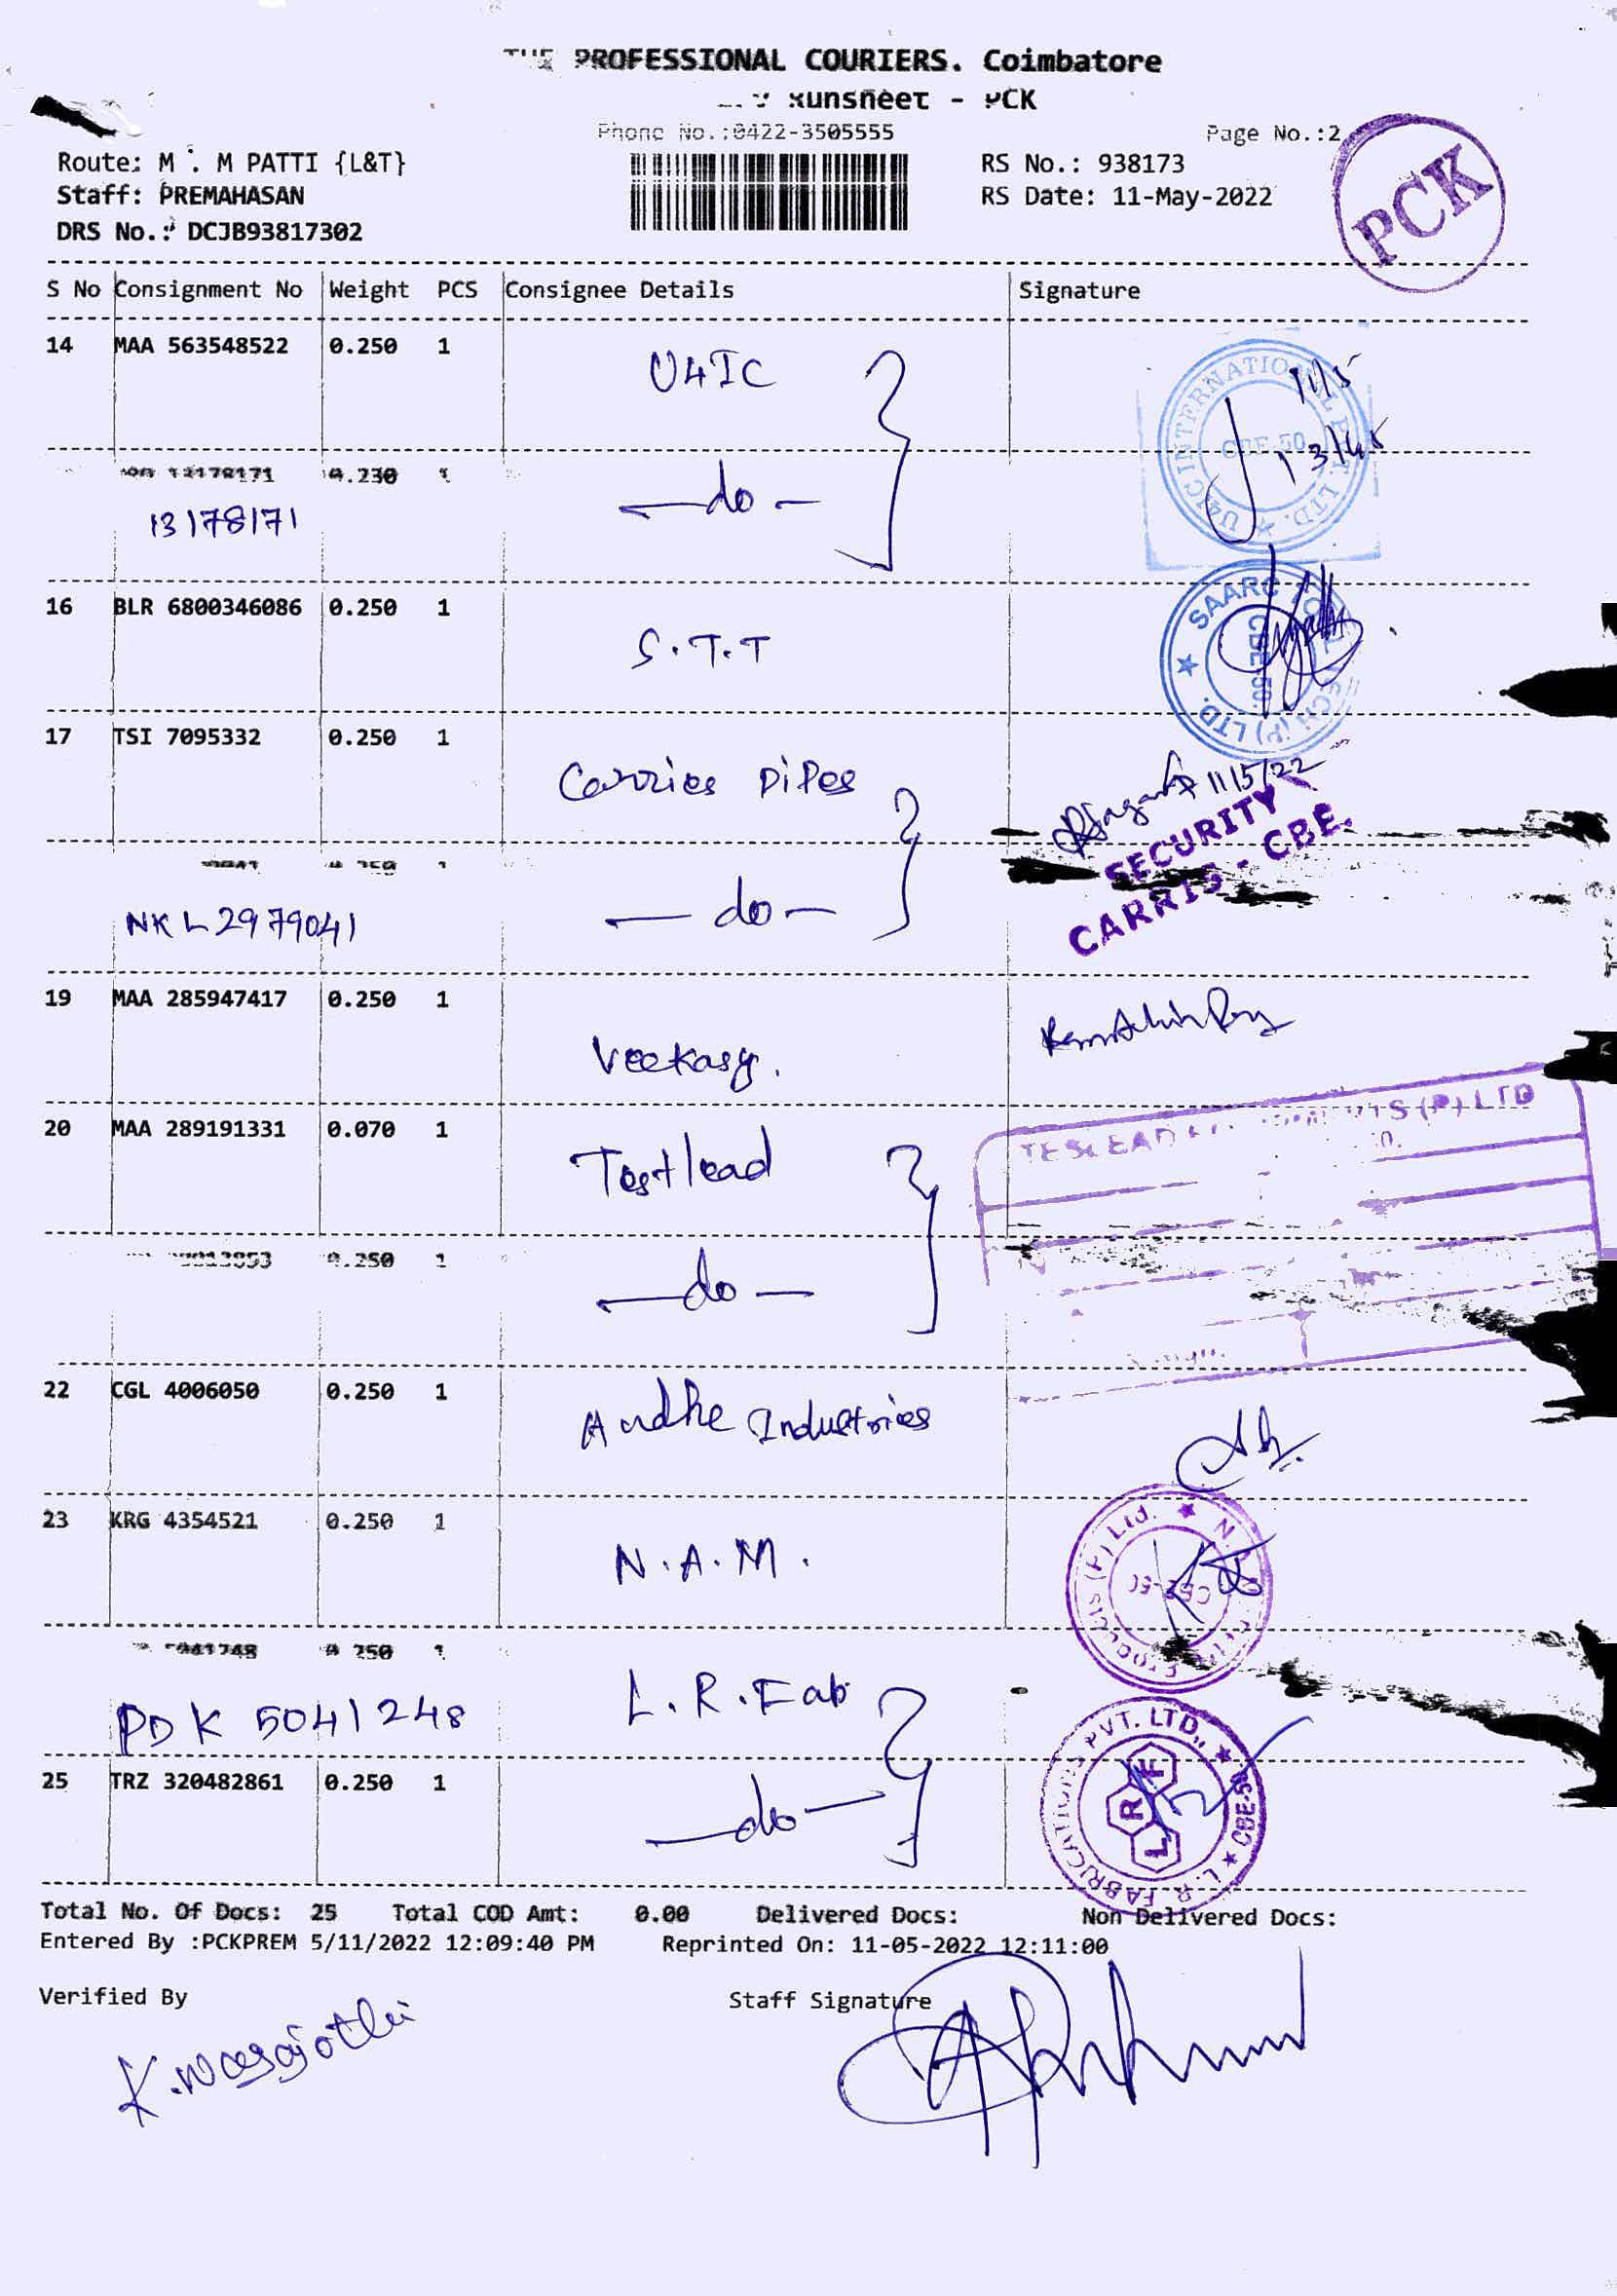 PROFESSIONAL COURIERS. Coimbatore
Runsheet - PCK
Phone No.:0422-3505555
Page No.:2
PCK
Route: M . M PATTI {L&T}
RS No.: 938173
Staff: PREMAHASAN
RS Date: 11-May-2022
DRS No.: DCJB93817302
S No Consignment No Weight PCS Consignee Details Signature
14 MAA 563548522 0.250 1 U4IC
U4IC INTERNATIONAL PVT. LTD. CBE-50
11/5
13178171 —do—
16 BLR 6800346086 0.250 1 S.T.T
SAARC TOOL TECH (P) LTD. CBE-50.
17 TSI 7095332 0.250 1 Carries Pipes
11/5/22
SECURITY
CARRIS - CBE.
NKL 2979041 —do—
19 MAA 285947417 0.250 1 Veekasy.
20 MAA 289191331 0.070 1 Testlead
TESTLEAD (P) LTD
0.250 1 —do—
22 CGL 4006050 0.250 1 Andhe Industries
23 KRG 4354521 0.250 1 N.A.M.
Products (P) Ltd.
PDK 5041248 L.R.Fab
25 TRZ 320482861 0.250 1 —do—
L. R. FABRICATIONS PVT. LTD., CBE-50
LRF
Total No. Of Docs: 25 Total COD Amt: 0.00 Delivered Docs: Non Delivered Docs:
Entered By :PCKPREM 5/11/2022 12:09:40 PM Reprinted On: 11-05-2022 12:11:00
Verified By Staff Signature